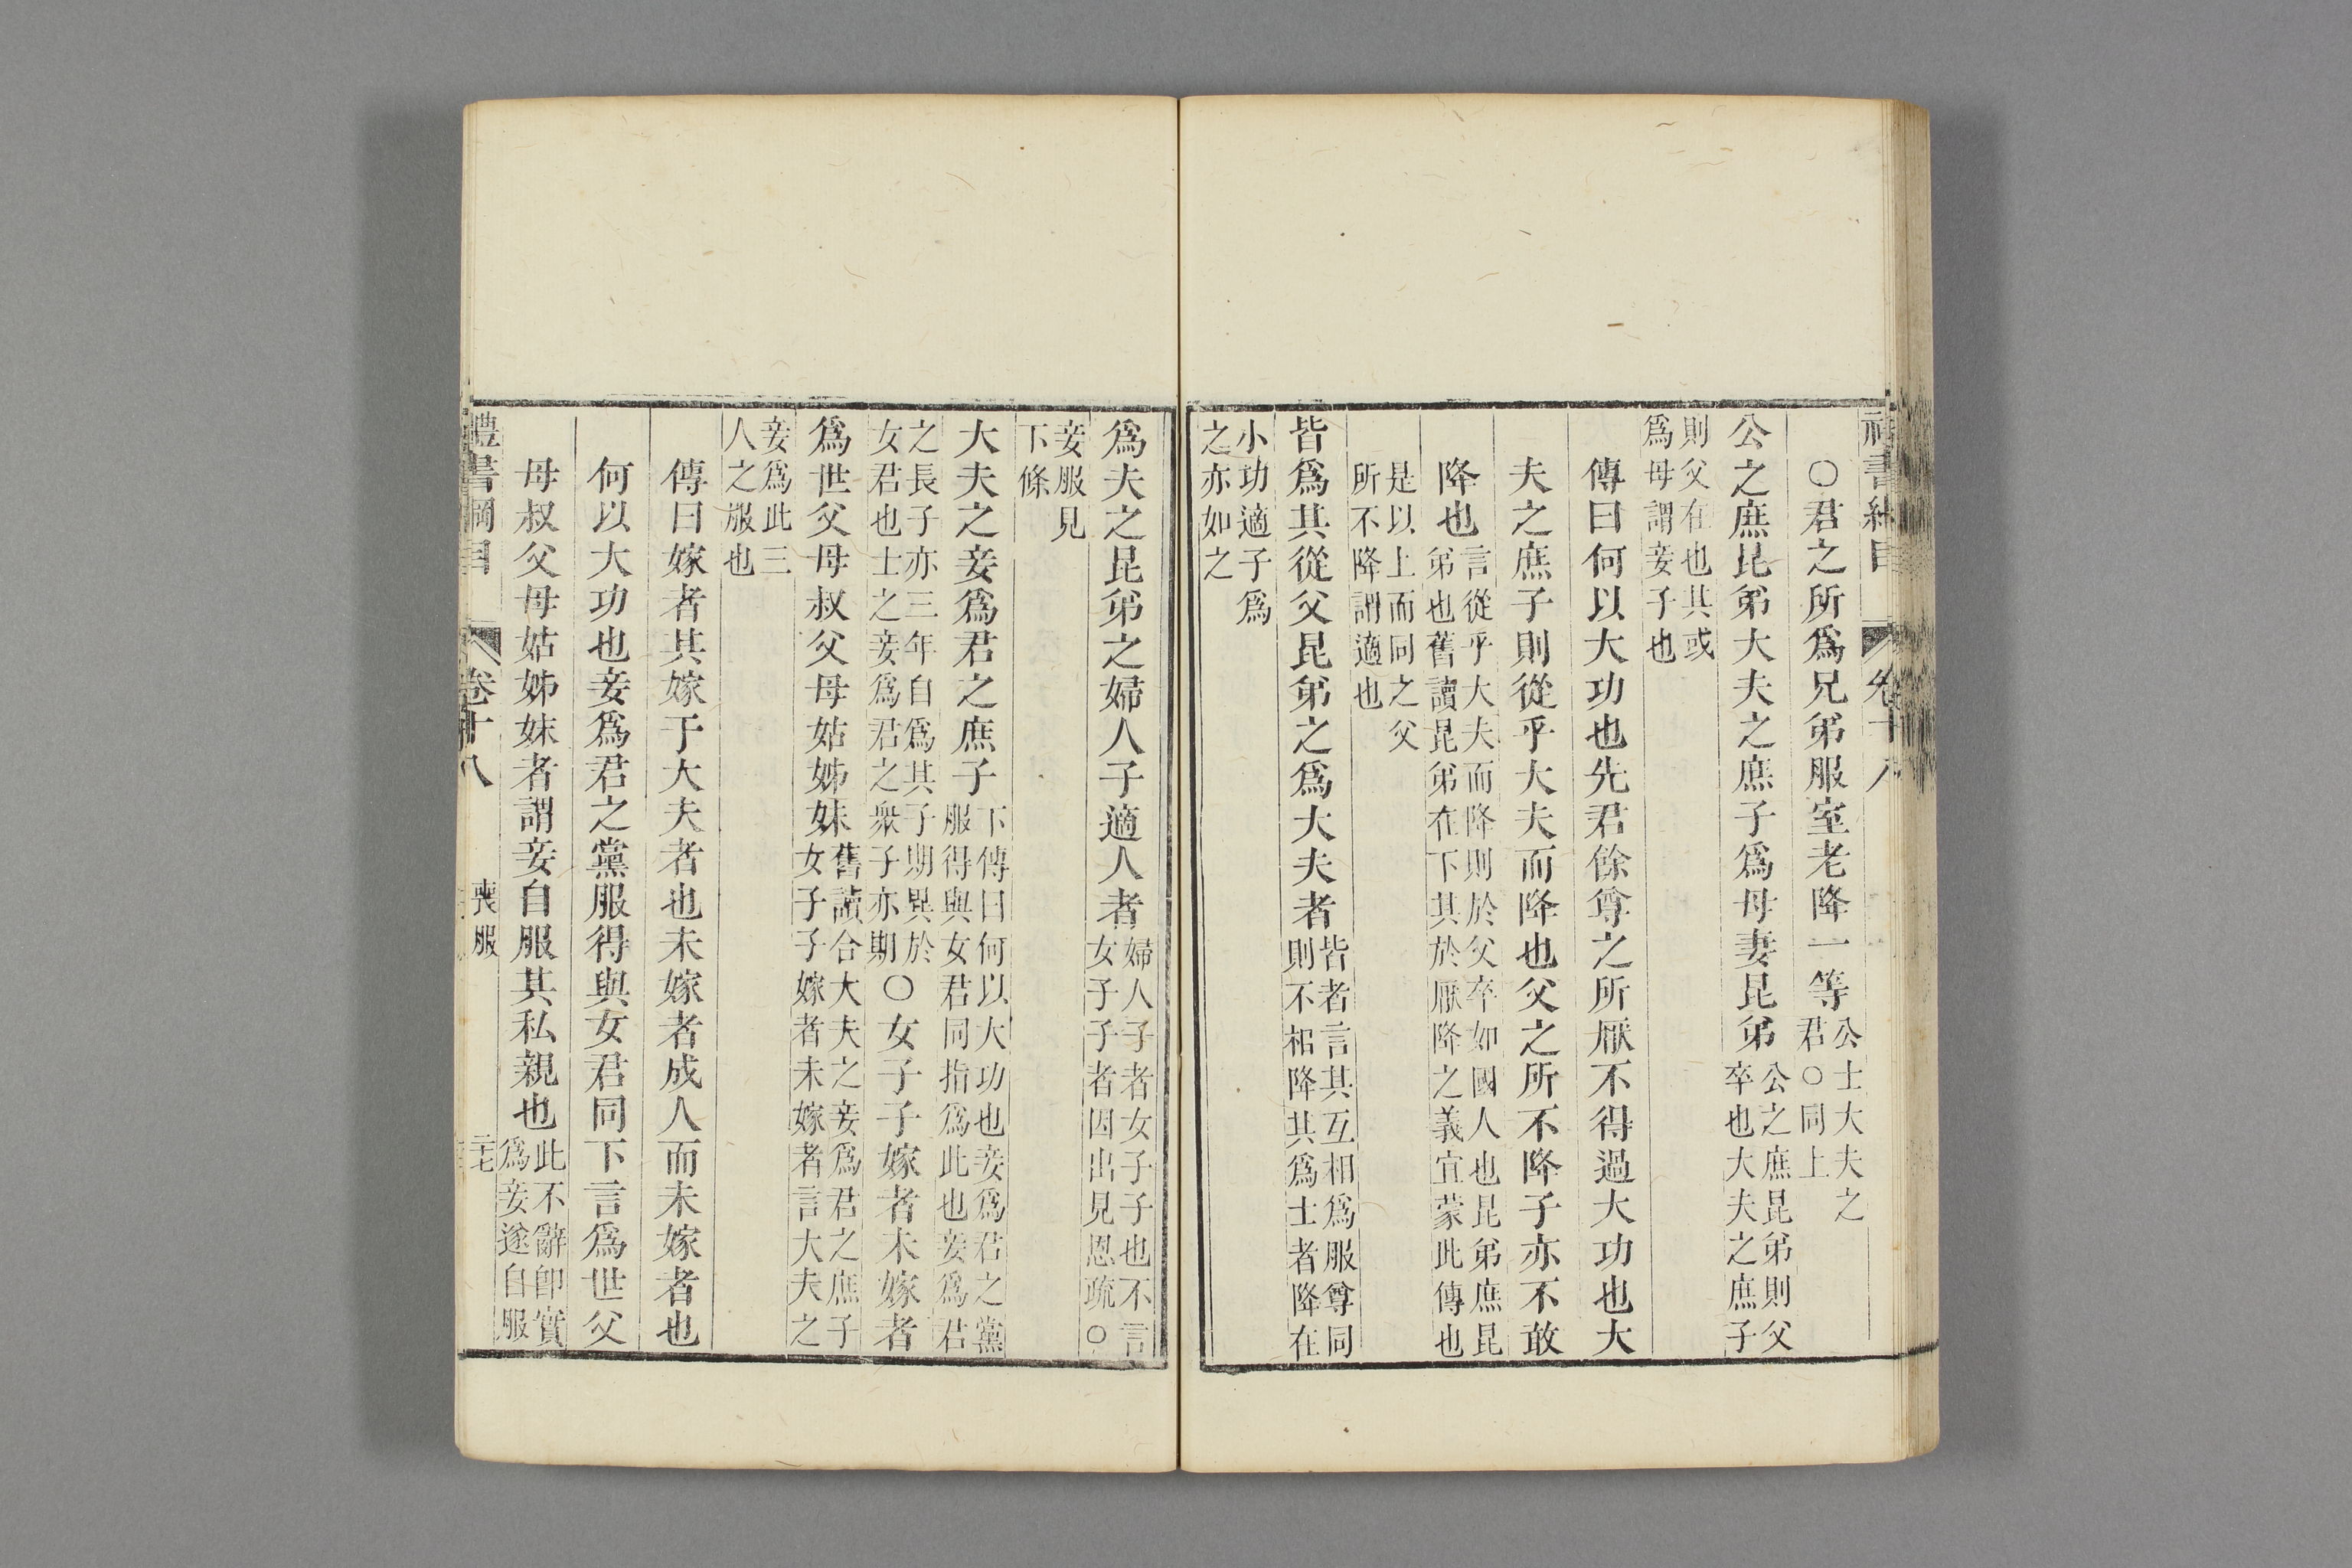 禮書綱目 卷十八
〇君之所爲兄弟服室老降一等公士大夫之
君〇同上
公之庶昆弟大夫之庶子爲母妻昆弟公之庶昆弟則父
卒也大夫之庶子
則父在也其或
爲母謂妾子也
傳曰何以大功也先君餘尊之所厭不得過大功也大
夫之庶子則從乎大夫而降也父之所不降子亦不敢
降也言從乎大夫而降則於父卒如國人也昆弟庶昆
弟也舊讀昆弟在下其於厭降之義宜蒙此傳也
是以上而同之父
所不降謂適也
皆爲其從父昆弟之爲大夫者皆者言其互相爲服尊同
則不相降其爲士者降在
小功適子爲
之亦如之
爲夫之昆弟之婦人子適人者婦人子者女子子也不言
女子子者因出見恩疏〇
妾服見
下條
大夫之妾爲君之庶子下傳曰何以大功也妾爲君之黨
服得與女君同指爲此也妾爲君
之長子亦三年自爲其子期異於
女君也士之妾爲君之衆子亦期〇女子子嫁者未嫁者
爲世父母叔父母姑姊妹舊讀合大夫之妾爲君之庶子
女子子嫁者未嫁者言大夫之
妾爲此三
人之服也
傳曰嫁者其嫁于大夫者也未嫁者成人而未嫁者也
何以大功也妾爲君之黨服得與女君同下言爲世父
母叔父母姑姊妹者謂妾自服其私親也此不辭卽實
爲妾遂自服
禮書綱目 卷十八 喪服 二七